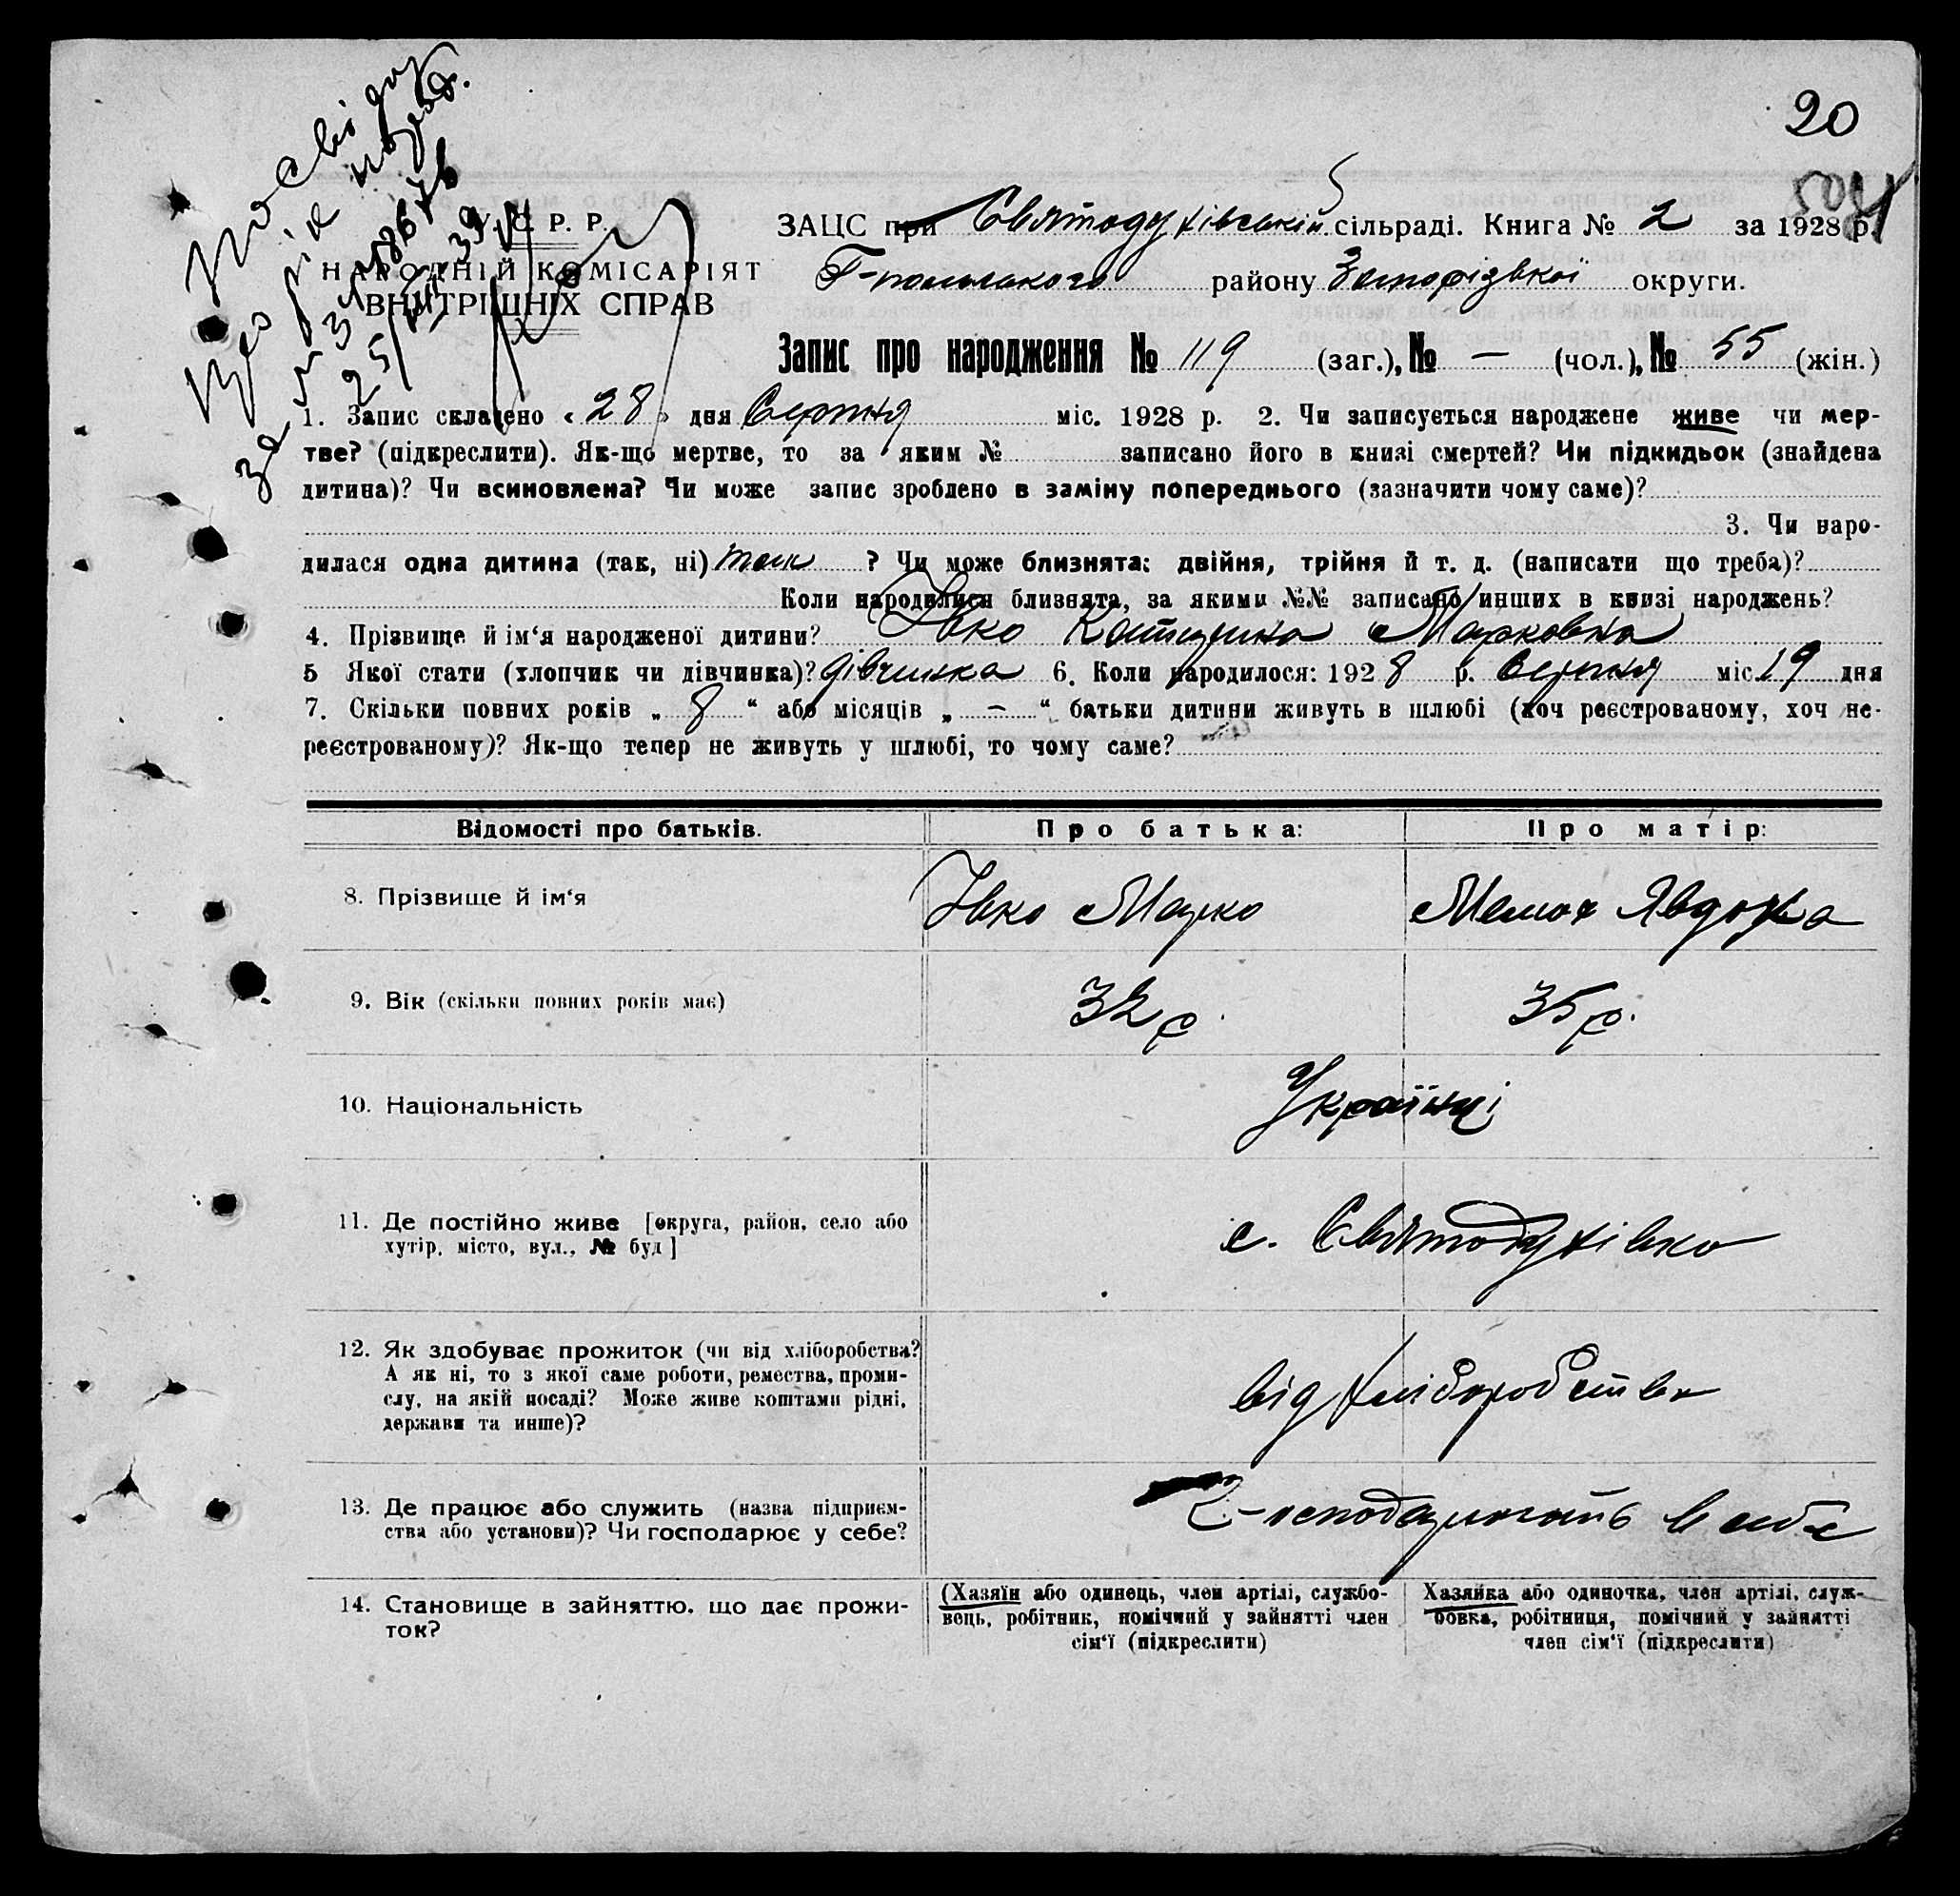 20
504
Посвідку
про рік народж.
за № 3 Л 118676
25/VII 39
У. С. Р. Р.
НАРОДНІЙ КОМІСАРІЯТ
ВНУТРІШНІХ СПРАВ
ЗАЦС при Святодухівській сільраді. Книга № 2 за 1928 р.
Г-польського району Запорізької округи.
Запис про народження № 119 (заг.), № — (чол.), № 55 (жін.)
1. Запис складено « 28 » дня Серпня міс. 1928 р. 2. Чи записується народжене живе чи мер-
тве? (підкреслити). Як-що мертве, то за яким № записано його в книзі смертей? Чи підкидьок (знайдена
дитина)? Чи всиновлена? Чи може запис зроблено в заміну попереднього (зазначити чому саме)?
3. Чи наро-
дилася одна дитина (так, ні) так ? Чи може близнята: двійня, трійня й т. д. (написати що треба)?
Коли народилися близнята, за якими №№ записано инших в книзі народжень?
4. Прізвище й ім‘я народженої дитини? Івко Катерина Марковна
5 Якої стати (хлопчик чи дівчинка)? дівчинка 6. Коли народилося: 1928 р. Серпня міс. 19 дня
7. Скільки повних років „ 8 “ або місяців „ — “ батьки дитини живуть в шлюбі (хоч реєстрованому, хоч не-
реєстрованому)? Як-що тепер не живуть у шлюбі, то чому саме?
Відомості про батьків. Про батька: Про матір:
8. Прізвище й ім‘я Івко Марко Явдоха
9. Вік (скільки повних років має) 32 р. 35 р.
10. Національність Українці
11. Де постійно живе [округа, район, село або
хутір, місто, вул., № буд ] с. Святодухівка
12. Як здобуває прожиток (чи від хліборобства?
А як ні, то з якої саме роботи, ремества, проми-
слу, на якій посаді? Може живе коштами рідні,
держави та инше)? від хліборобства
13. Де працює або служить (назва підприєм-
ства або установи)? Чи господарює у себе? Господарюють в себе
14. Становище в зайняттю, що дає прожи-
ток?
(Хазяїн або одинець, член артілі, службо-
вець, робітник, помічний у зайнятті член
сім‘ї (підкреслити)
Хазяйка або одиночка, член артілі, служ-
бовка, робітниця, помічний у зайнятті
член сім‘ї (підкреслити)